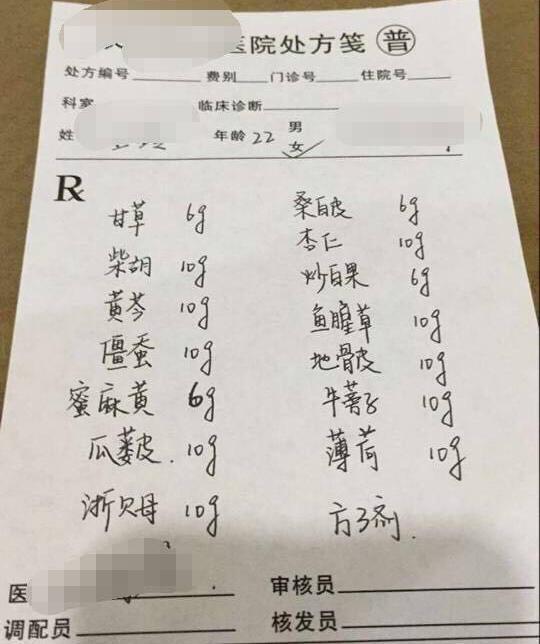 医院处方笺 普
处方编号 费别 门诊号 住院号
科室 临床诊断
姓 年龄 22 男
女
Rx
甘草 6g 桑白皮 6g
柴胡 10g 杏仁 10g
黄芩 10g 炒白果 6g
僵蚕 10g 鱼腥草 10g
蜜麻黄 6g 地骨皮 10g
瓜蒌皮. 10g 牛蒡子 10g
浙贝母 10g 薄荷 10g
方3剂.
医 审核员
调配员 核发员